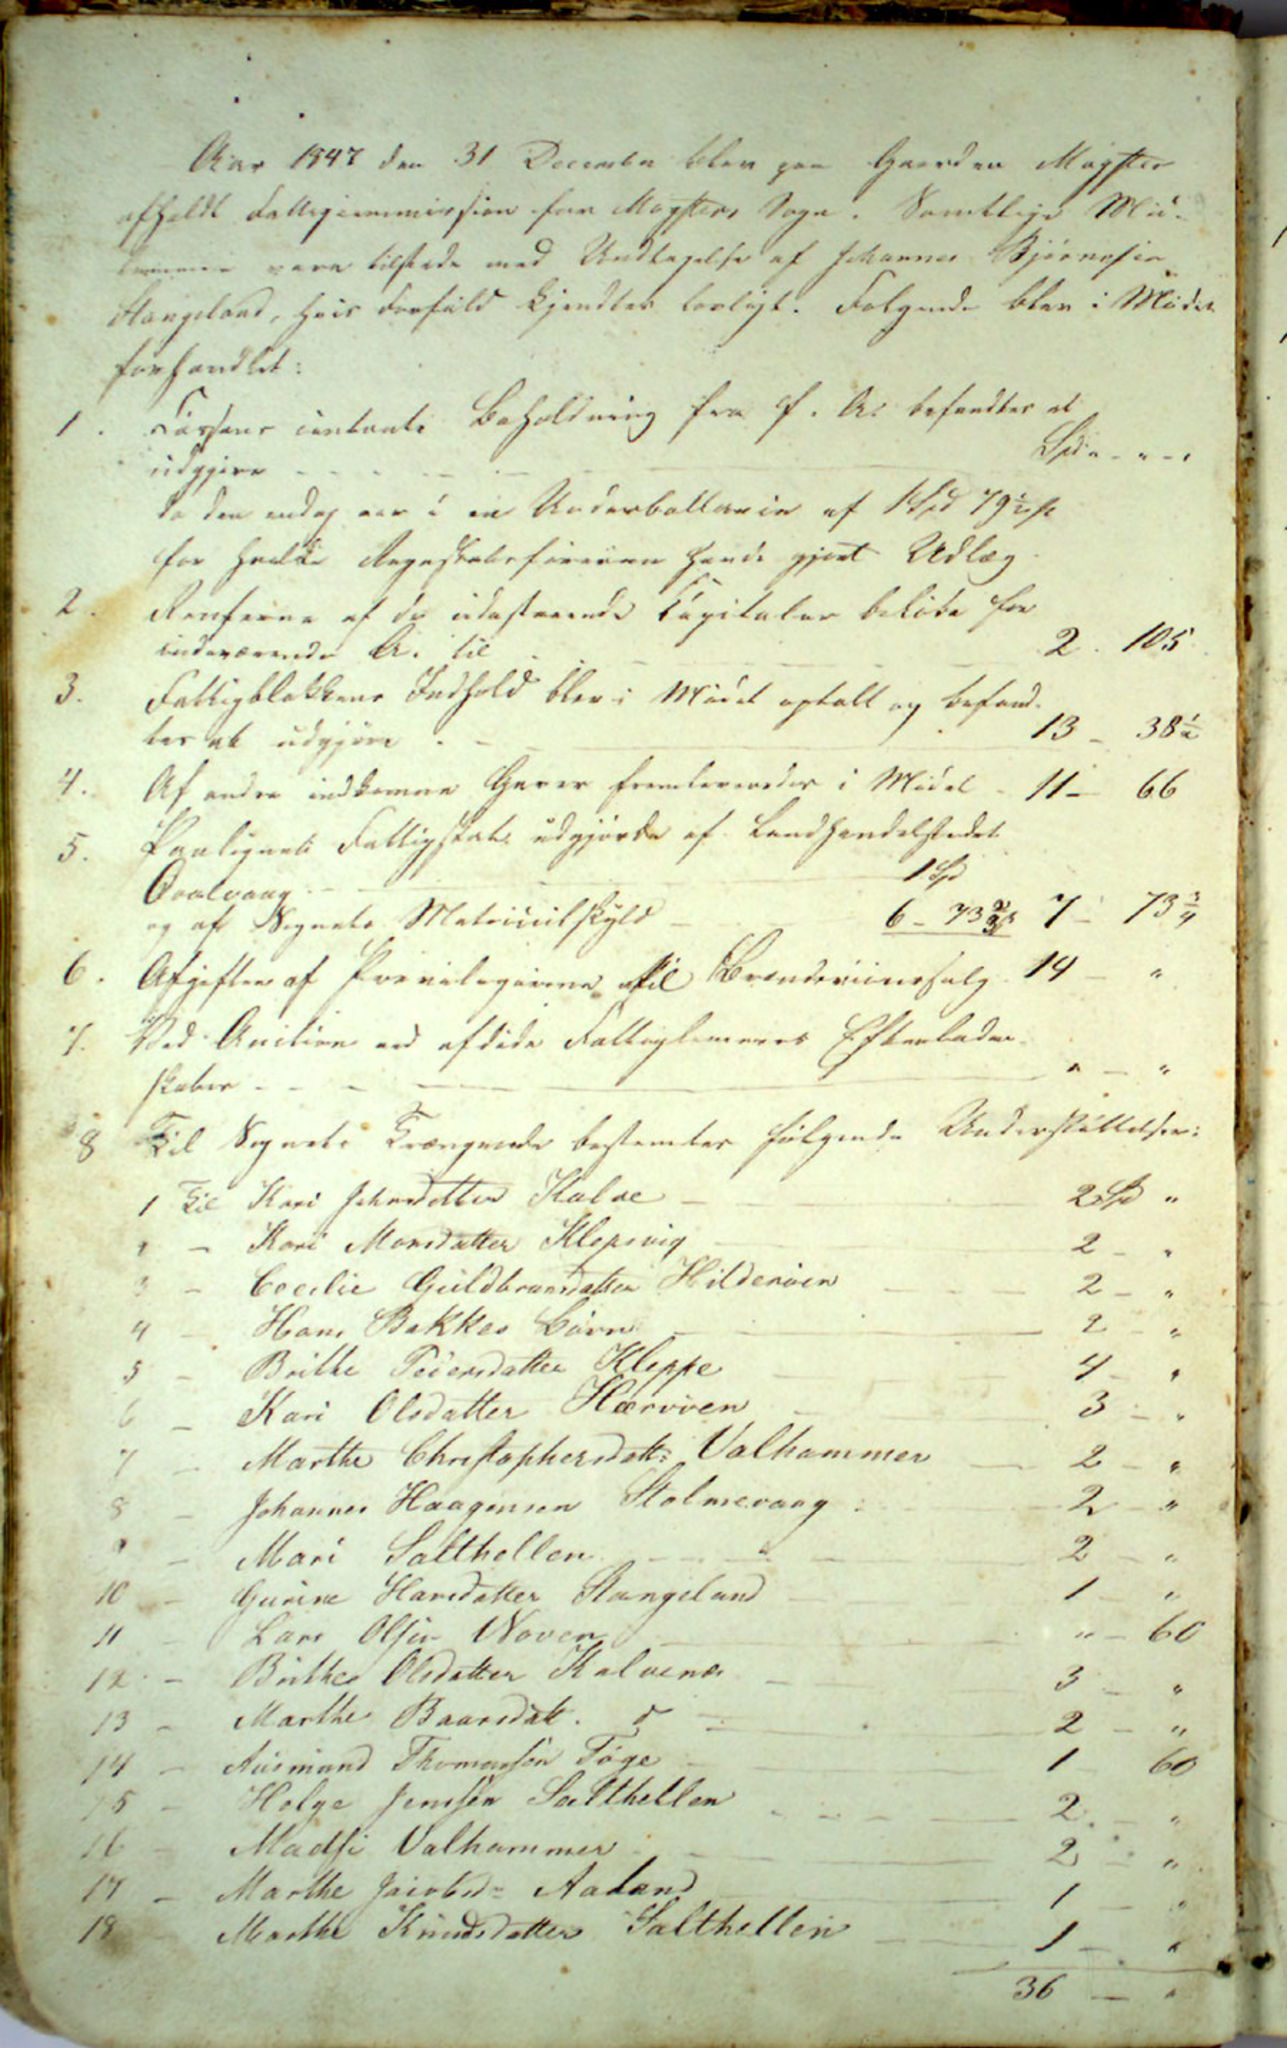 Aar 1847 den 31 December blev paa Gaarden Møgster
afholdt Fattigcommission for Møgsters Sogn. Samtlige Med-
lemmer vare tilstede med Undtagelse af Johannes Bjørnesen
Stangeland, hvis Forfald kjendtes lovligt. Følgende blev i Mødet
forhandlet:
1. Cassens contante Beholdning fra f. A. befandtes at
udgjøre - - - - - Spd " - " - "
da den endog var i en Underballance af 1 Spd 79½ s
for hvilke Regnskabsføreren havde gjort Udlæg.
2. Renterne af de udestaaende Capitaler beløbe for
indeværende A. til - 2. 105
3. Fattigblokkens Indhold blev i Mødet optalt og befand-
tes at udgjøre - 13 - 38½
4. Af andre indkomne Gaver fremleveredes i Mødet - 11 - 66
5. Paalignet Fattigskat udgjorde af Landhandelstedet
Qvalvaag - 1 Spd
og af Sognets Matriculskyld - 6 - 73¾ s 7 - 73¾
6. Afgiften af Privilegierne til Brændeviinssalg 14 - "
7. Ved Auction over afdøde Fattiglemmers Efterladen-
skaber - - - " - "
8 Til Sognets Trængende bestemtes følgende Understøttelser:
1 Til Kari Johnsdatter Kalve - 2 Spd "
2 - Kari Monsdatter Klepsvig - 2 - "
3 - Cecilie Guldbrandsdatter Hilderøen - 2 - "
4 - Hans Bakkes Børn - 2 - "
5 - Brithe Peiersdatter Kleppe - 4 - "
6 - Kari Olsdatter Hærøen - 3 - "
7 - Marthe Christophersdatt: Valhammer - 2 - "
8 - Johannes Haagensen Stolmevaag - 2 - "
9 - Mari Salthellen - 2 - "
10 - Gurine Hansdatter Stangeland - 1 - "
11 - Lars Olsen - " - 60
12 - Brithe Olsdatter Kalvenes - 3 - "
13 - Marthe Baarsdatt. d° - 2 - "
14 - Aasmund Thomassøn Føge - 1 60
15 - Helge Jensen Salthellen - 2 - "
16 - Madsi Valhammer - 2 - "
17 - Marthe Jacobsd= Aaland 1 - "
18 - Marthe Knudsdatter Salthellen - 1 - "
36 - "